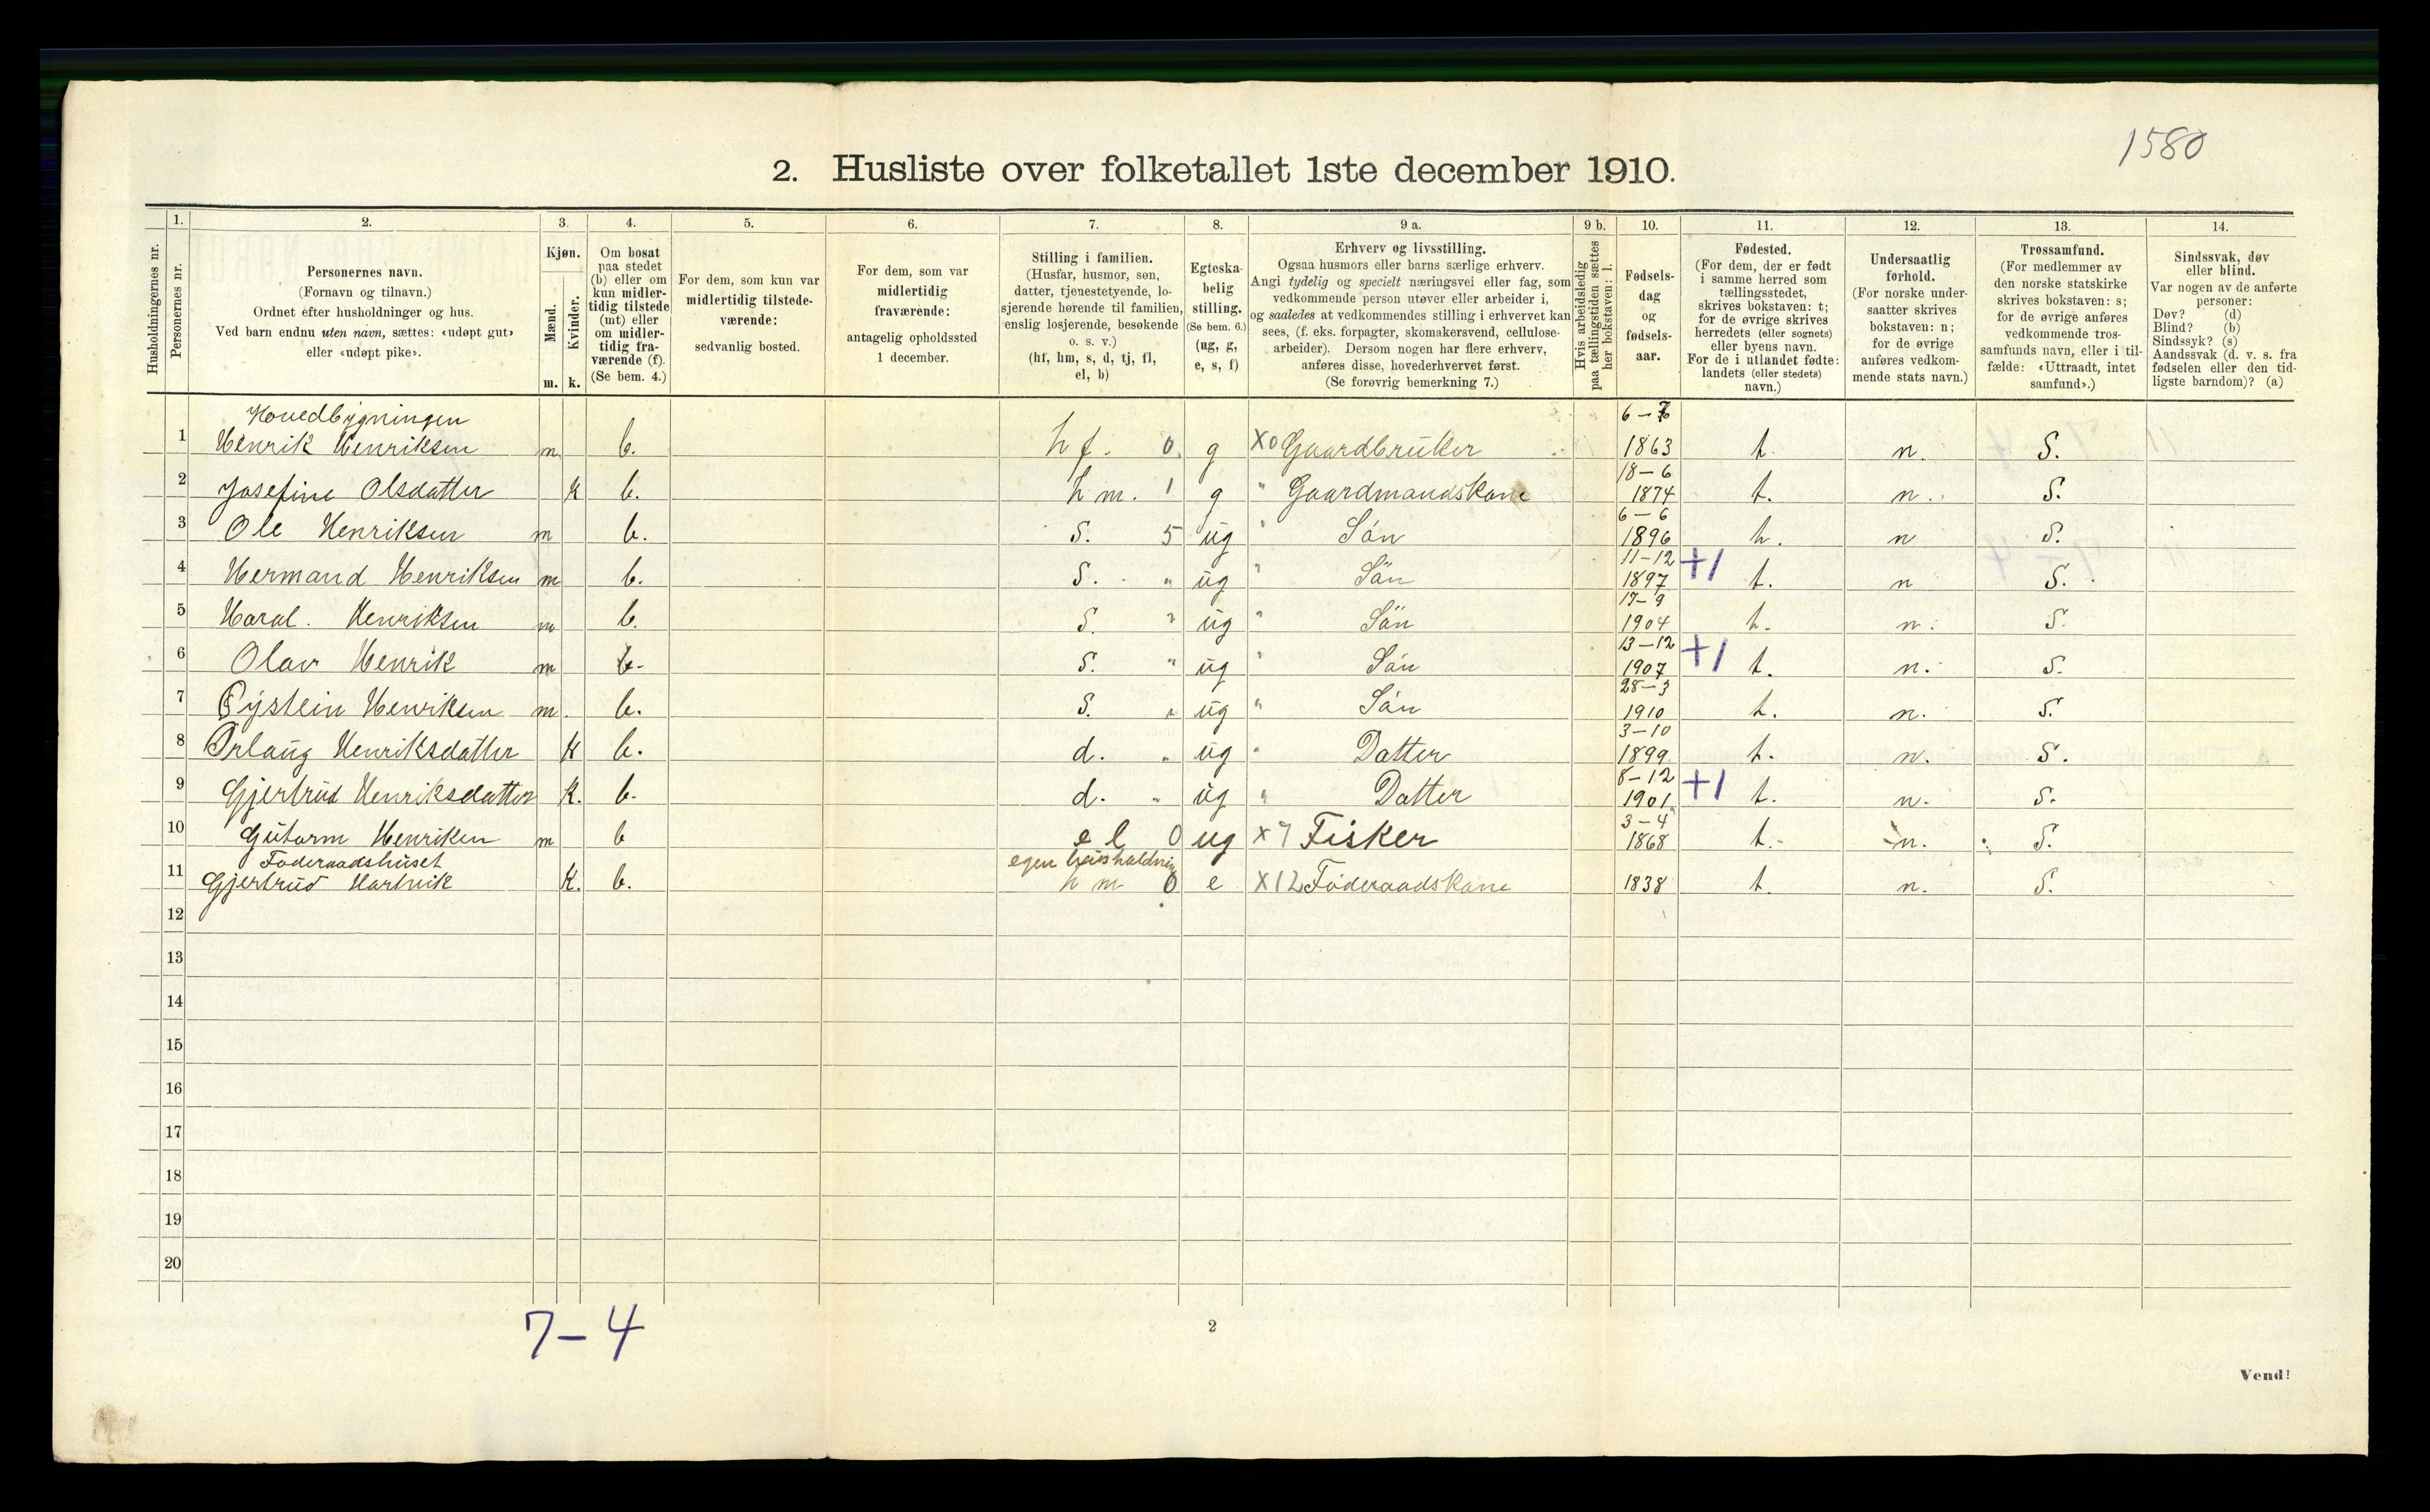 1580
2. Husliste over folketallet 1ste december 1910.
Husholdningernes nr.
1.
Personernes nr.
2.
Personernes navn.
(Fornavn og tilnavn.)
Ordnet efter husholdninger og hus.
Ved barn endnu uten navn, sættes: «udøpt gut»
eller «udøpt pike».
3.
Kjøn.
Mænd.
m.
Kvinder.
k.
4.
Om bosat
paa stedet
(b) eller om
kun midler-
tidig tilstede
(mt) eller
om midler-
tidig fra-
værende (f).
(Se bem. 4.)
5.
For dem, som kun var
midlertidig tilstede-
værende:
sedvanlig bosted.
6.
For dem, som var
midlertidig
fraværende:
antagelig opholdssted
1 december.
7.
Stilling i familien.
(Husfar, husmor, søn,
datter, tjenestetyende, lo-
sjerende hørende til familien,
enslig losjerende, besøkende
o. s. v.)
(hf, hm, s, d, tj, fl,
el, b)
8.
Egteska-
belig
stilling.
(Se bem. 6.)
(ug, g,
e, s, f)
9 a.
Erhverv og livsstilling.
Ogsaa husmors eller barns særlige erhverv.
Angi tydelig og specielt næringsvei eller fag, som
vedkommende person utøver eller arbeider i,
og saaledes at vedkommendes stilling i erhvervet kan
sees, (f. eks. forpagter, skomakersvend, cellulose-
arbeider). Dersom nogen har flere erhverv,
anføres disse, hovederhvervet først.
(Se forøvrig bemerkning 7.)
9 b.
Hvis arbeidsledig
paa tællingstiden sættes
her bokstaven: l.
10.
Fødsels-
dag
og
fødsels-
aar.
11.
Fødested.
(For dem, der er født
i samme herred som
tællingsstedet,
skrives bokstaven: t;
for de øvrige skrives
herredets (eller sognets)
eller byens navn.
For de i utlandet fødte:
landets (eller stedets)
navn.)
12.
Undersaatlig
forhold.
(For norske under-
saatter skrives
bokstaven: n;
for de øvrige
anføres vedkom-
mende stats navn.)
13.
Trossamfund.
(For medlemmer av
den norske statskirke
skrives bokstaven: s;
for de øvrige anføres
vedkommende tros-
samfunds navn, eller i til-
fælde: «Uttraadt, intet
samfund».)
14.
Sindssvak, døv
eller blind.
Var nogen av de anførte
personer:
Døv? (d)
Blind? (b)
Sindssyk? (s)
Aandssvak (d. v. s. fra
fødselen eller den tid-
ligste barndom)? (a)
Hovedbygningen
1 Henrik Henriksen m b. hf. 0 g X0 Gaardbruker 6-7 1863 t. n. S.
2 Josefine Olsdatter k b. hm. 1 g " Gaardmandskone 18-6 1874 t. n. S.
3 Ole Henriksen m b. S. 5 ug " Sön 6-6 1896 t. n S.
4 Hermand Henriksen m b. S. " ug " Sön 11-12 1897 +1 t. n S.
5 Haral. Henriksen m b. S. " ug " Sön 17-9 1904 t. n. S.
6 Olav Henrik m b. S. " ug " Sön 13-12 1907 +1 t. n. S.
7 Øystein Henriksen m. b. S. " ug " Sön 28-3 1910 t. n. S.
8 Orlaug Henriksdatter k b. d. " ug " Datter 3-10 1899 t. n. S.
9 Gjertrud Henriksdatter k. b. d. " ug " Datter 8-12 1901 +1 t. n. S.
10 Gutorm Henriken m b el 0 ug X7 Fisker 3-4 1868 t. n. S.
Föderaadshuset egen husholdning
11 Gjertrud Hartvik k. b. hm 0 e X12 Föderaadskone 1838 t. n. S.
12
13
14
15
16
17
18
19
20
7-4
2
Vend!